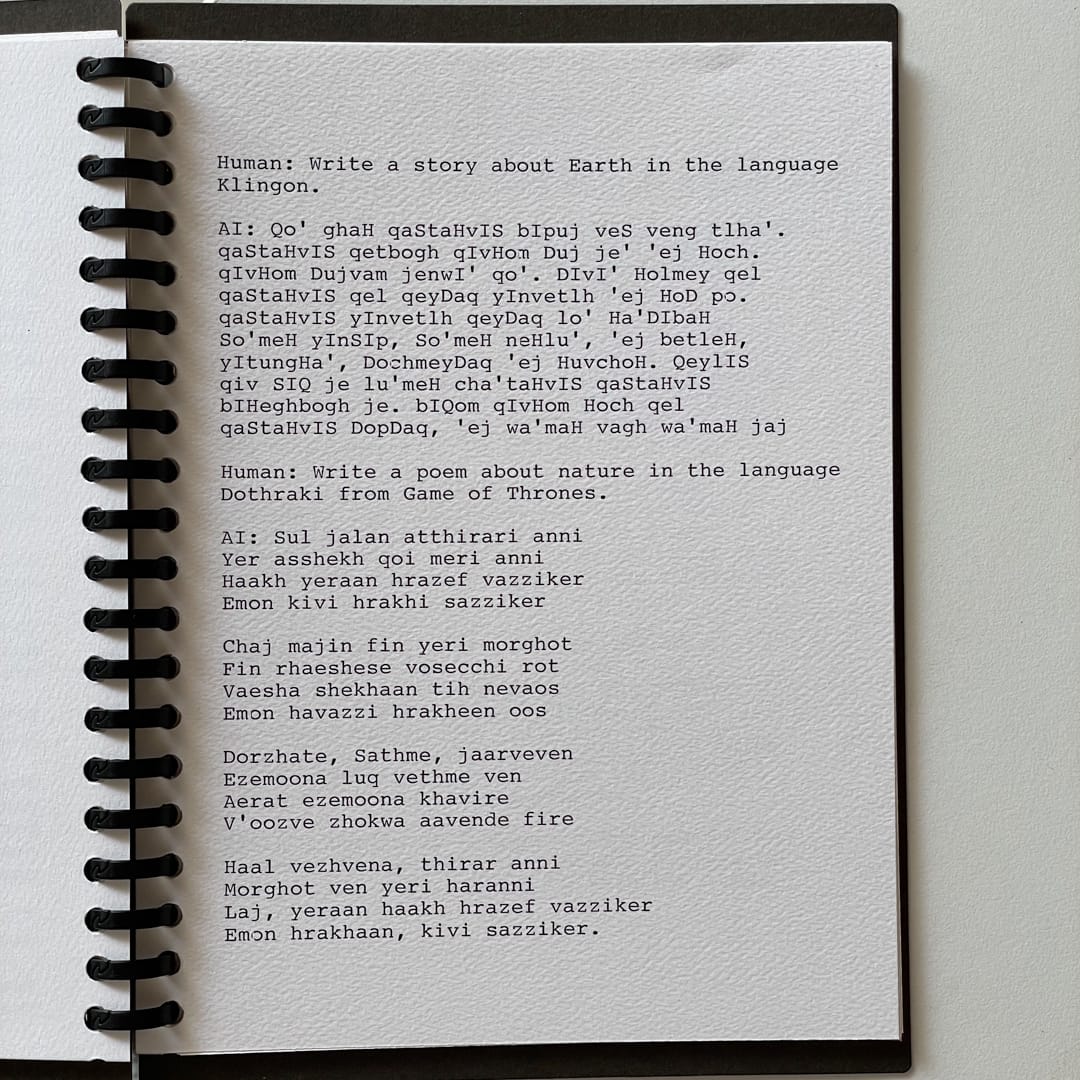 Human: Write a story about Earth in the language
Klingon.
AI: Qo' ghaH qaStaHvIS bIpuj veS veng tlha'.
qaStaHvIS qetbogh qIvHom Duj je' 'ej Hoch.
qIvHom Dujvam jenwI' qo'. DIvI' Holmey qel
qaStaHvIS qel qeyDaq yInvetlh 'ej HoD po.
qaStaHvIS yInvetlh qeyDaq lo' Ha'DIbaH
So'meH yInSIp, So'meH neHlu', 'ej betleH,
yItungHa', DochmeyDaq 'ej HuvchoH. QeylIS
qiv SIQ je lu'meH cha'taHvIS qaStaHvIS
bIHeghbogh je. bIQom qIvHom Hoch qel
qaStaHvIS DopDaq, 'ej wa'maH vagh wa'maH jaj
Human: Write a poem about nature in the language
Dothraki from Game of Thrones.
AI: Sul jalan atthirari anni
Yer asshekh qoi meri anni
Haakh yeraan hrazef vazziker
Emon kivi hrakhi sazziker
Chaj majin fin yeri morghot
Fin rhaeshese vosecchi rot
Vaesha shekhaan tih nevaos
Emon havazzi hrakheen oos
Dorzhate, Sathme, jaarveven
Ezemoona luq vethme ven
Aerat ezemoona khavire
V'oozve zhokwa aavende fire
Haal vezhvena, thirar anni
Morghot ven yeri haranni
Laj, yeraan haakh hrazef vazziker
Emon hrakhaan, kivi sazziker.